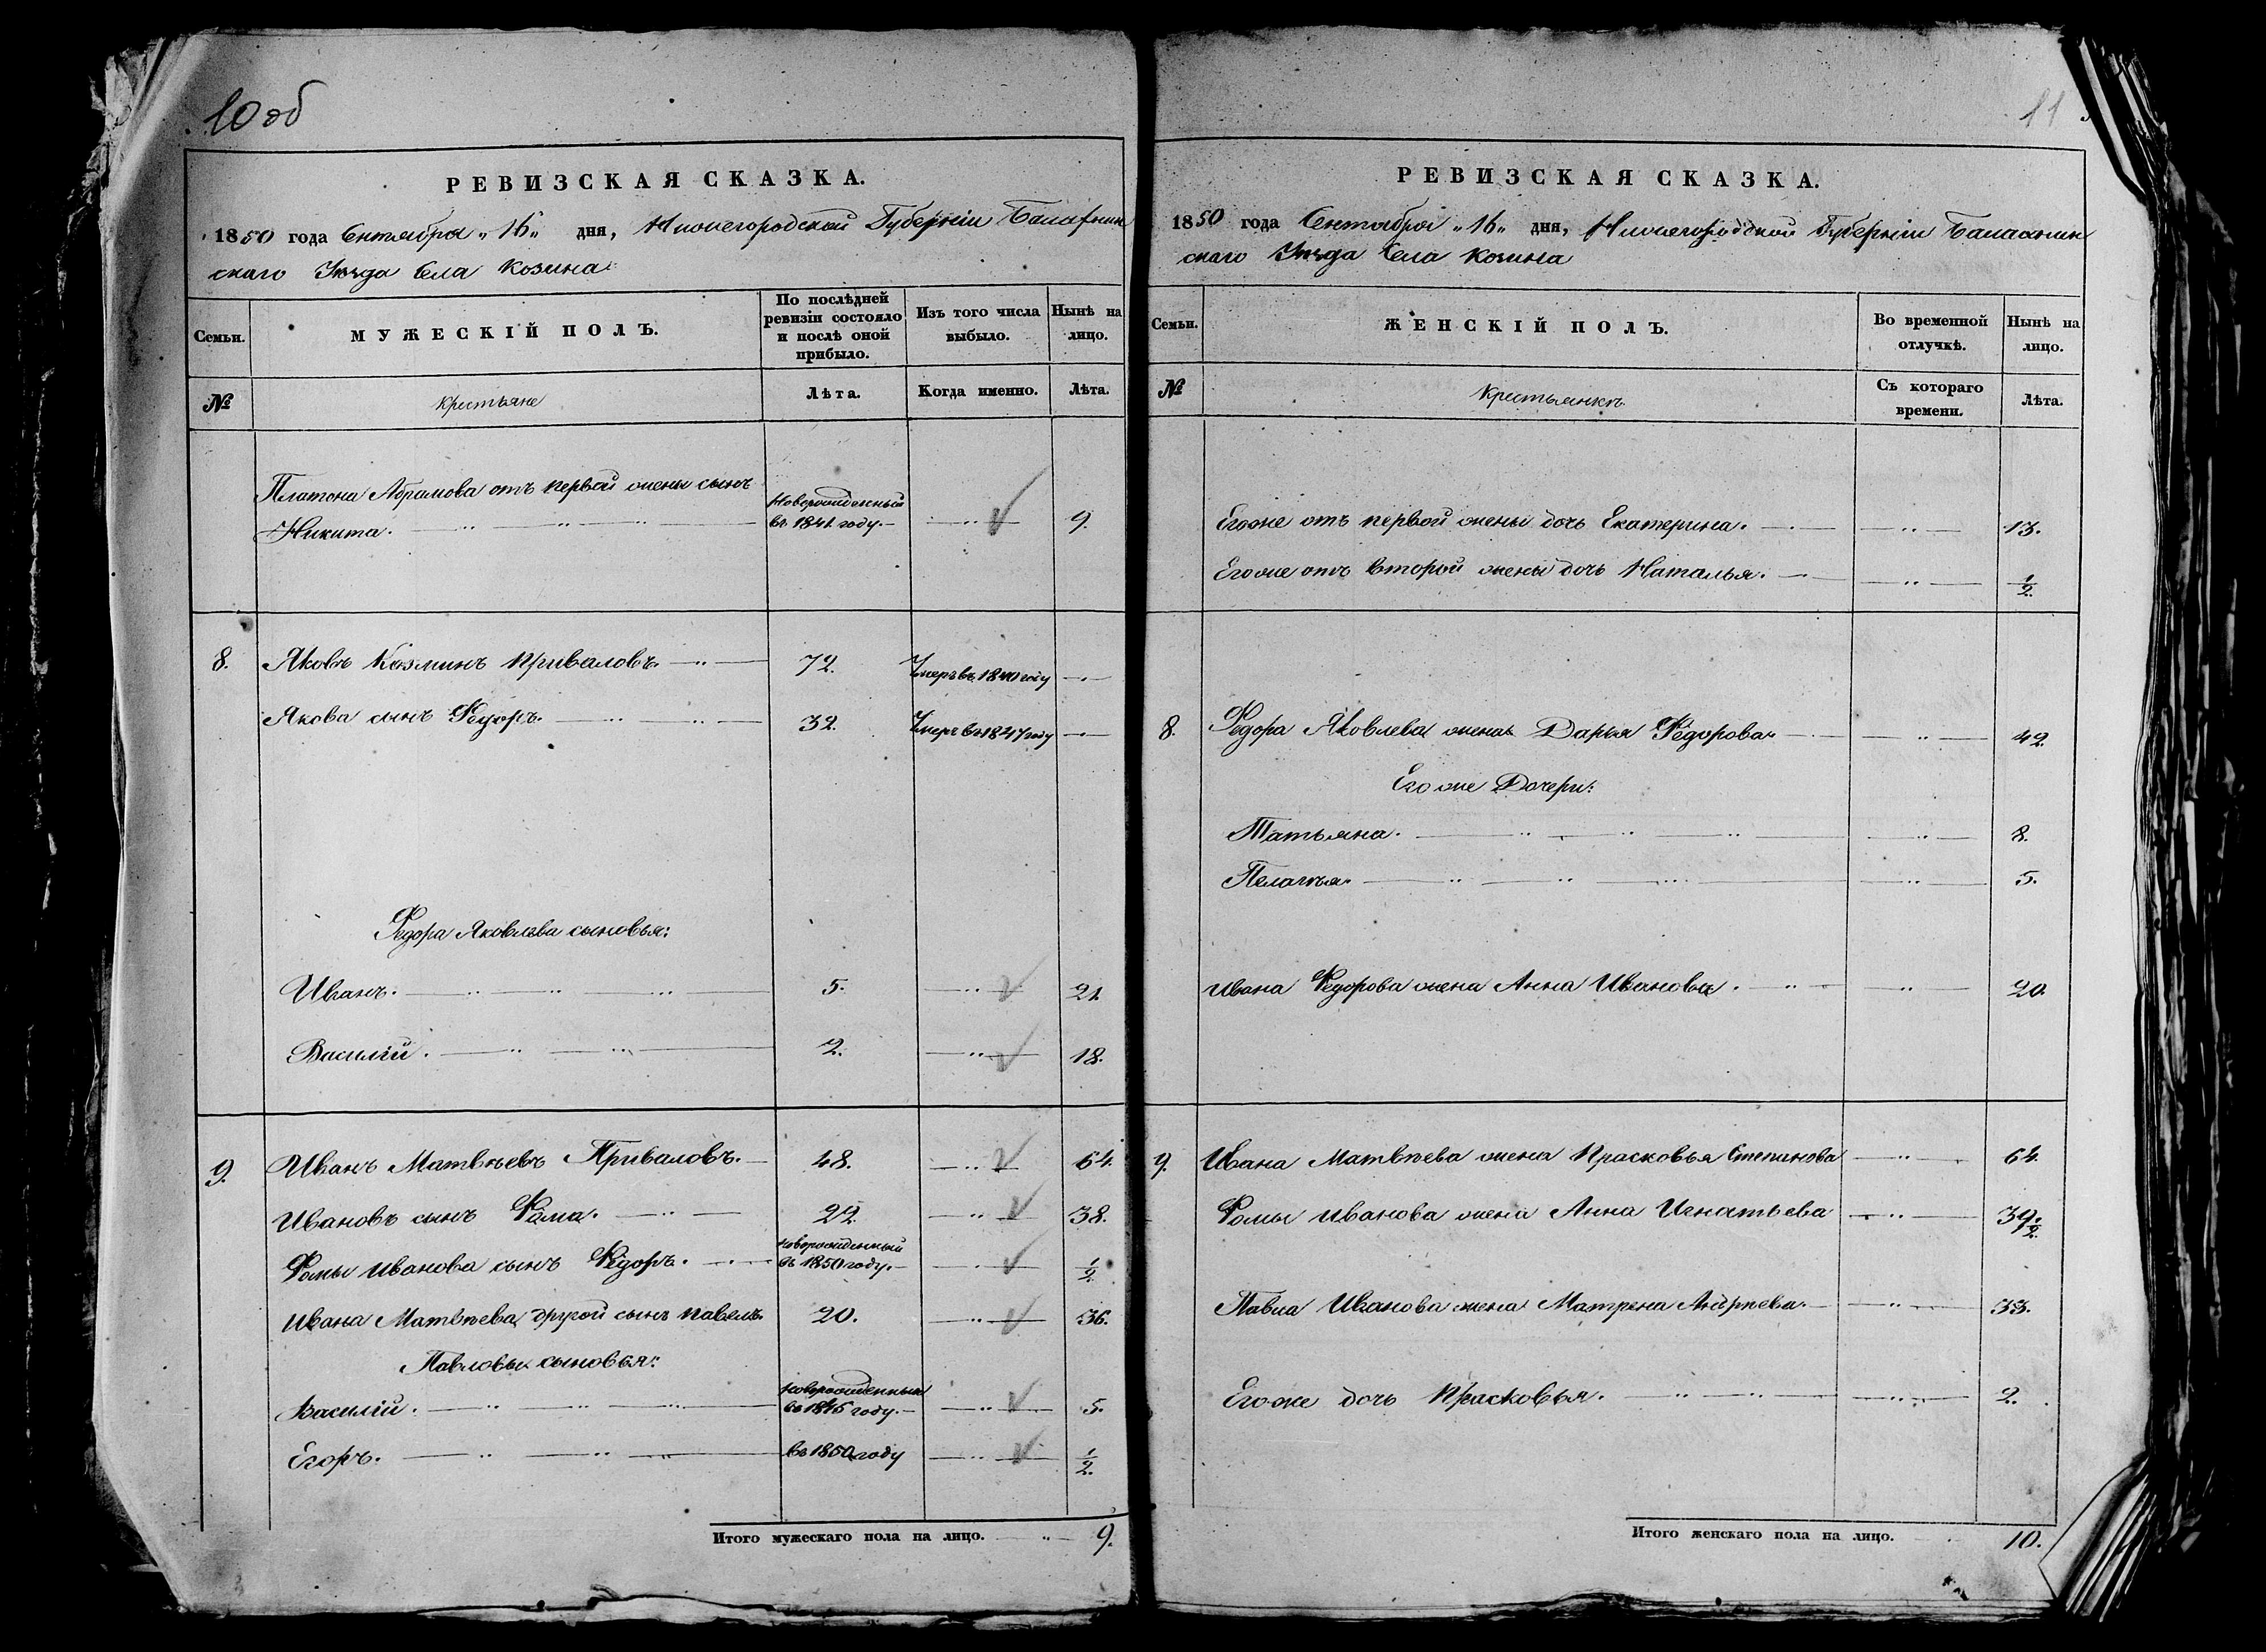 10 об
РЕВИЗСКАЯ СКАЗКА.
1850 года Сентября „16„ дня, Нижегородской Губерніи Балахнин
скаго Уѣзда Села Козина
Семьи.
МУЖЕСКІЙ ПОЛЪ.
По послѣдней ревизіи состояло и послѣ оной прибыло.
Изъ того числа выбыло.
Нынѣ на лицо.
№
Крестьяне
Лѣта.
Когда именно.
Лѣта.
Платона Абрамова отъ первой жены сынъ
Никита. Новорожденный въ 1841 году. 9.
8. Яковъ Козминъ Приваловъ. 72. Умеръ въ 1840 году
Якова сынъ Федоръ. 32. Умеръ въ 1847 году
Федора Яковлева сыновья:
Иванъ. 5. 21
Василій. 2. 18.
9. Иванъ Матвѣевъ Приваловъ. 48. 64.
Ивановъ сынъ Фома. 22. 38.
Фомы Иванова сынъ Федоръ. новорожденный въ 1850 году. 1/2
Ивана Матвѣева другой сынъ Павелъ. 20. 36.
Павловы сыновья:
Василій. новорожденный въ 1845 году. 5.
Егоръ. въ 1850 году 1/2.
Итого мужескаго пола на лицо. 9.
11
РЕВИЗСКАЯ СКАЗКА.
1850 года Сентября „16„ дня, Нижегородской Губерніи Балахнин
скаго Уѣзда Села Козина
Семьи.
ЖЕНСКІЙ ПОЛЪ.
Во временной отлучкѣ.
Нынѣ на лицо.
№
Крестьянки
Съ котораго времени.
Лѣта.
Егоже отъ первой жены дочь Екатерина. 13.
Егоже отъ второй жены дочь Наталья. 1/2.
8. Федора Яковлева жена Дарья Федорова 42.
Егоже Дочери:
Татьяна. 8.
Пелагья. 5.
Ивана Федорова жена Анна Иванова. 20.
9. Ивана Матвѣева жена Прасковья Степанова 64.
Фомы Иванова жена Анна Игнатьева 39 1/2.
Павла Иванова жена Матрена Андреева. 33.
Егоже дочь Прасковья. 2.
Итого женскаго пола на лицо. 10.